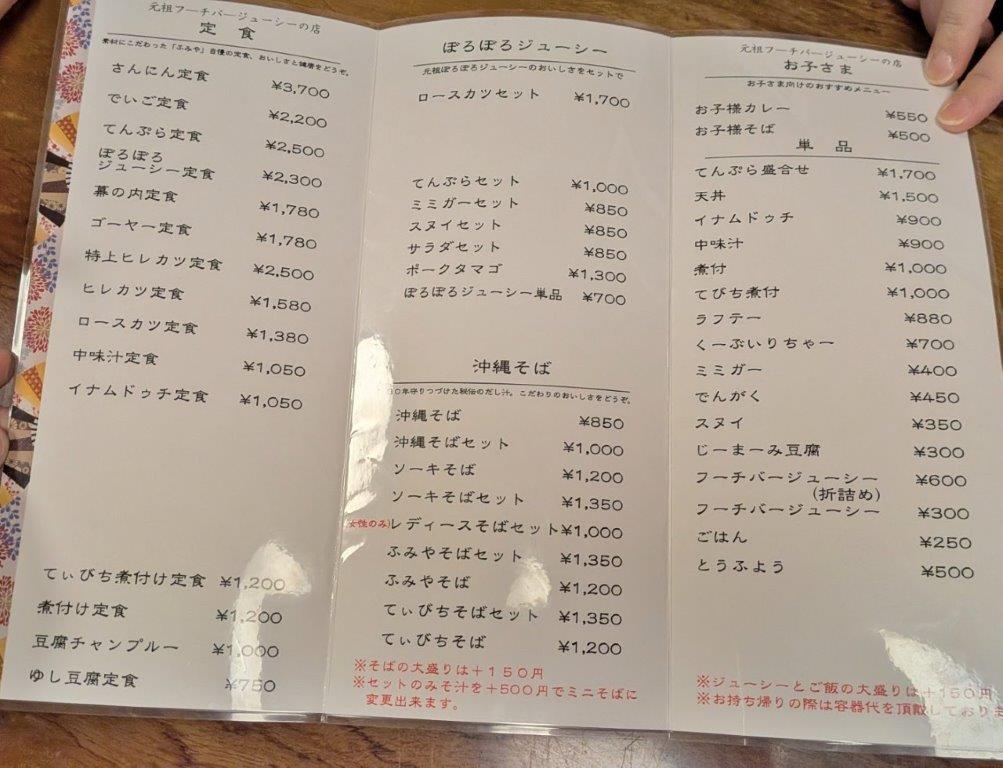 元祖フーチバージューシーの店
定 食
素材にこだわった「ふみや」自慢の定食、おいしさと健康をどうぞ。
さんにん定食 ¥3,700
でいご定食 ¥2,200
てんぷら定食 ¥2,500
ぽろぽろ
ジューシー定食 ¥2,300
幕の内定食 ¥1,780
ゴーヤー定食 ¥1,780
特上ヒレカツ定食 ¥2,500
ヒレカツ定食 ¥1,580
ロースカツ定食 ¥1,380
中味汁定食 ¥1,050
イナムドゥチ定食 ¥1,050
てぃびち煮付け定食 ¥1,200
煮付け定食 ¥1,200
豆腐チャンプルー ¥1,000
ゆし豆腐定食 ¥750
ぽろぽろジューシー
元祖ぽろぽろジューシーのおいしさをセットで
ロースカツセット ¥1,700
てんぷらセット ¥1,000
ミミガーセット ¥850
スヌイセット ¥850
サラダセット ¥850
ポークタマゴ ¥1,300
ぽろぽろジューシー単品 ¥700
沖縄そば
０年守りつづけた秘伝のだし汁。こだわりのおいしさをどうぞ。
沖縄そば ¥850
沖縄そばセット ¥1,000
ソーキそば ¥1,200
ソーキそばセット ¥1,350
(女性のみ)レディースそばセット ¥1,000
ふみやそばセット ¥1,350
ふみやそば ¥1,200
てぃびちそばセット ¥1,350
てぃびちそば ¥1,200
※そばの大盛りは＋１５０円
※セットのみそ汁を＋500円でミニそばに
変更出来ます。
元祖フーチバージューシーの店
お子さま
お子さま向けのおすすめメニュー
お子様カレー ¥550
お子様そば ¥500
単 品
てんぷら盛合せ ¥1,700
天丼 ¥1,500
イナムドゥチ ¥900
中味汁 ¥900
煮付 ¥1,000
てびち煮付 ¥1,000
ラフテー ¥880
くーぶいりちゃー ¥700
ミミガー ¥400
でんがく ¥450
スヌイ ¥350
じーまーみ豆腐 ¥300
フーチバージューシー ¥600
(折詰め)
フーチバージューシー ¥300
ごはん ¥250
とうふよう ¥500
※ジューシーとご飯の大盛りは＋150円
※お持ち帰りの際は容器代を頂戴しておりま